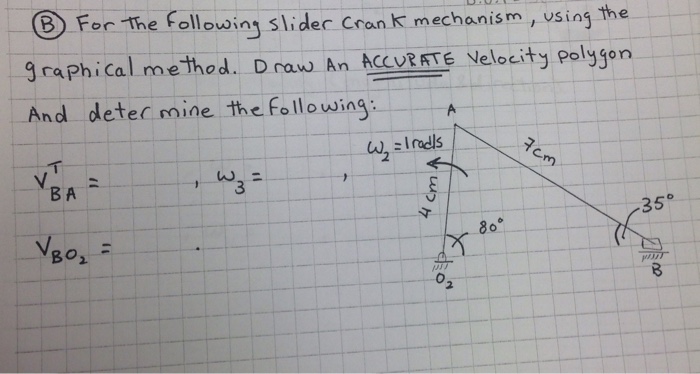 (B) For the following slider crank mechanism, using the
graphical method. Draw An ACCURATE Velocity polygon
And determine the following:
V^T_BA = , ω₃ = ,
V_BO₂ = .
A
ω₂ = 1 rad/s
7cm
4 cm
80°
35°
O₂
B